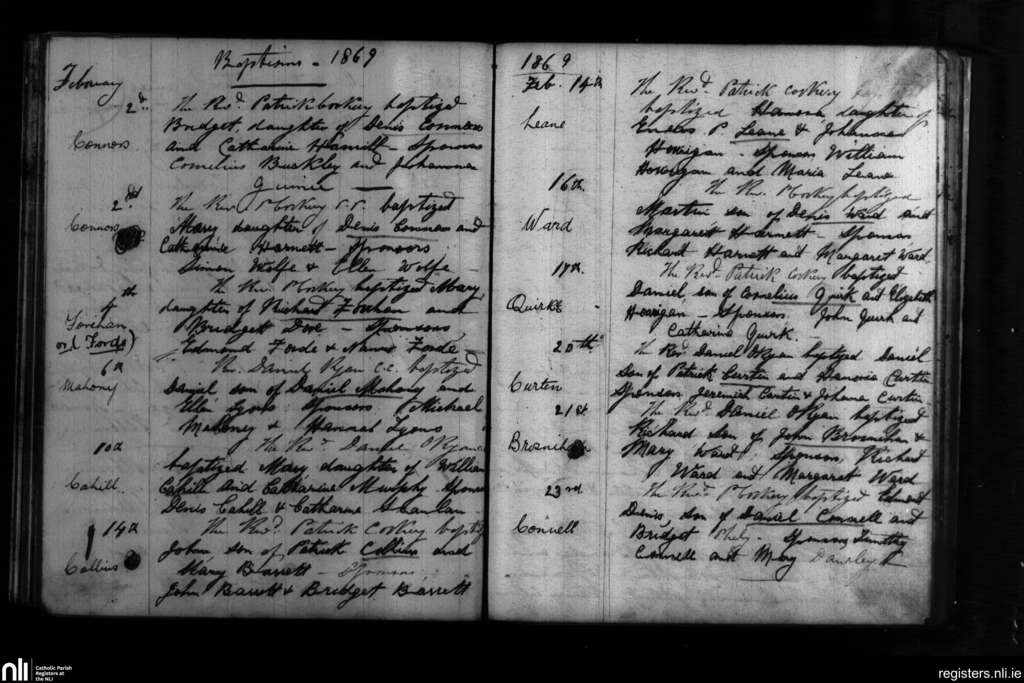 Baptisms - 1869
February
2d.
The Revd. Patrick Corkery baptized
Bridget, daughter of Denis Connors
Connors
and Catharine Harnett - Sponsors
Cornelius Buckley and Johanna
Guinee
2nd
The Revd P Corkery P.P. baptized
Connors
Mary daughter of Denis Connors and
Catharine Harnett - Sponsors
Simon Wolfe & Ellen Wolfe
4th
The Revd P Corkery baptized Mary
daughter of Richard Forhan and
Forehan
or (Forde)
Bridgett Dore - Sponsors
Edmond Forde & Nano Forde
6th
The Revd. Daniel Ryan C.C. baptized
Mahony
Daniel son of Daniel Mahony and
Ellen Lyons Sponsors Michael
Mahoney & Hannah Lyons
10th
The Revd. Daniel O'Ryan
baptized Mary daughter of William
Cahill.
Cahill and Catharine Murphy Sponsors
Denis Cahill & Catharine Scanlan
14th
The Revd. Patrick Corkery baptiz
John son of Patrick Collins and
Collins
Mary Barrett - Sponsors
John Barrett & Bridget Barrett
1869
Feb. 14th
The Revd. Patrick Corkery
baptized Hanora, daughter of
Leane
P Leane & Johanna
Horrigan - Sponsors William
Horrigan and Maria Leane
16th.
The Rev. P Corkery baptized
Martin son of Denis Ward and
Ward
Margaret Harnett - Sponsors
Richard Harnett and Margaret Ward
The Revd. Patrick Corkery baptized
Daniel, son of Cornelius Quirk and Elizabeth
Quirke
Horrigan - Sponsors. John Quirk and
Catharine Quirk.
20th.
The Revd Daniel O'Ryan baptized Daniel
son of Patrick Curtin and Hanoria Curtin
Curten
Sponsors Jeremiah Curtin & Johana Curtin
21st
The Revd. Daniel O'Ryan baptized
Richard son of John Brosnihan &
Brosnihan
Mary Ward. Sponsors Richard
Ward and Margaret Ward
23rd
The Revd. P Corkery baptized
Denis, son of Daniel Connell and
Connell
Bridget Sponsors Timothy
Connell and Mary
nli
Catholic Parish
Registers at
the NLI
registers.nli.ie